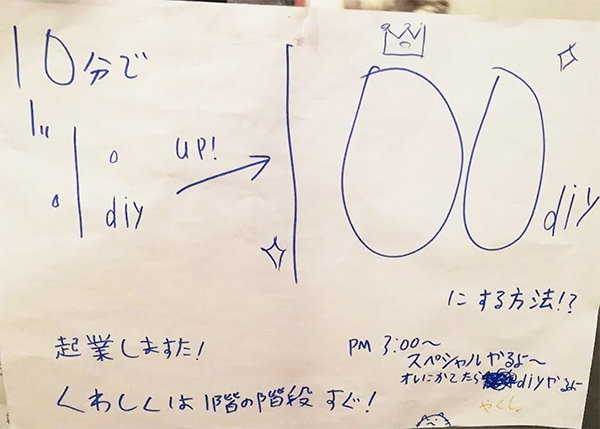 10分で
1
diy
UP!
100 diy
にする方法!?
起業しますた!
くわしくは1階の階段すぐ!
PM 3:00〜
スペシャルやるよ〜
オレにかてたらdiyやるよ
やくし。